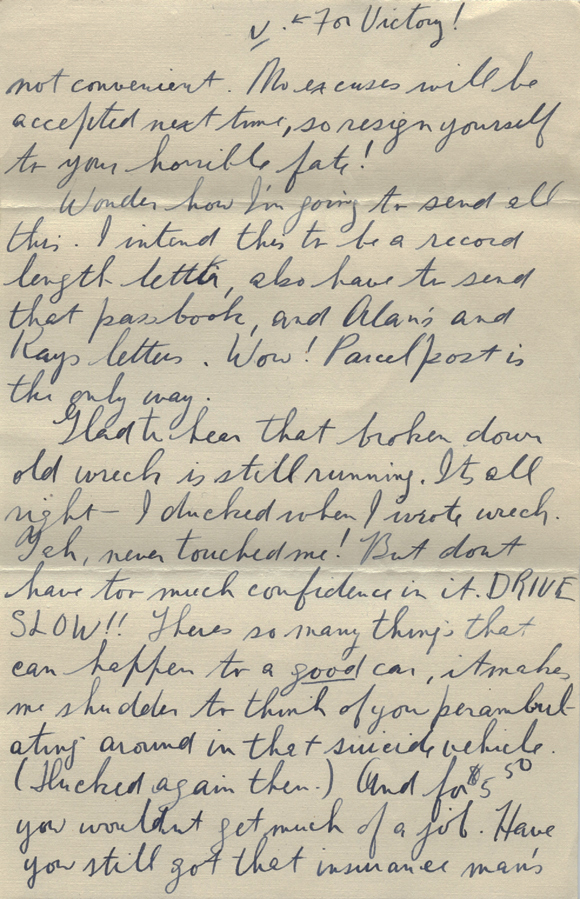 V. - For Victory!
not convenient. No excuses will be
accepted next time, so resign yourself
to your horrible fate!
Wonder how I'm going to send all
this. I intend this to be a record
length letter, also have to send
that passbook, and Alan's and
Rays letters. Wow! Parcel post is
the only way.
Glad to hear that broken down
old wreck is still running. Its all
right - I ducked when I wrote wreck.
Yah, never touched me! But dont
have too much confidence in it. DRIVE
SLOW!! Theres so many things that
can happen to a good car, it makes
me shudder to think of you perambul-
ating around in that suicide vehicle.
(Ducked again then.) And for $5.50
you wouldnt get much of a job. Have
you still got that insurance man's